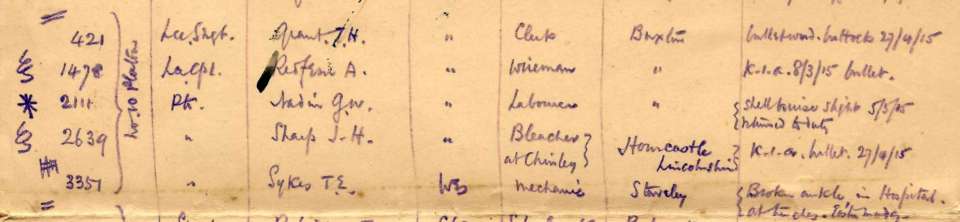 421 Lce. Sngt. Grant J. H. " Clerk Buxton bulletwound. buttocks 27/4/15
1478 La. Cpl. Redfern A. " Wireman " K.i.a. 8/3/15 bullet.
2111 Pte. Nadin G.W. " Labourer " shell bruise slight 5/3/15
returned to duty
No. 10 Platoon
2639 " Sharp J. H. " Bleacher at Chinley Horncastle Lincolnshire K.i.a. bullet. 27/4/15
3357 " Sykes T.E. Mechanic Staveley Broken ankle in Hospital.
at